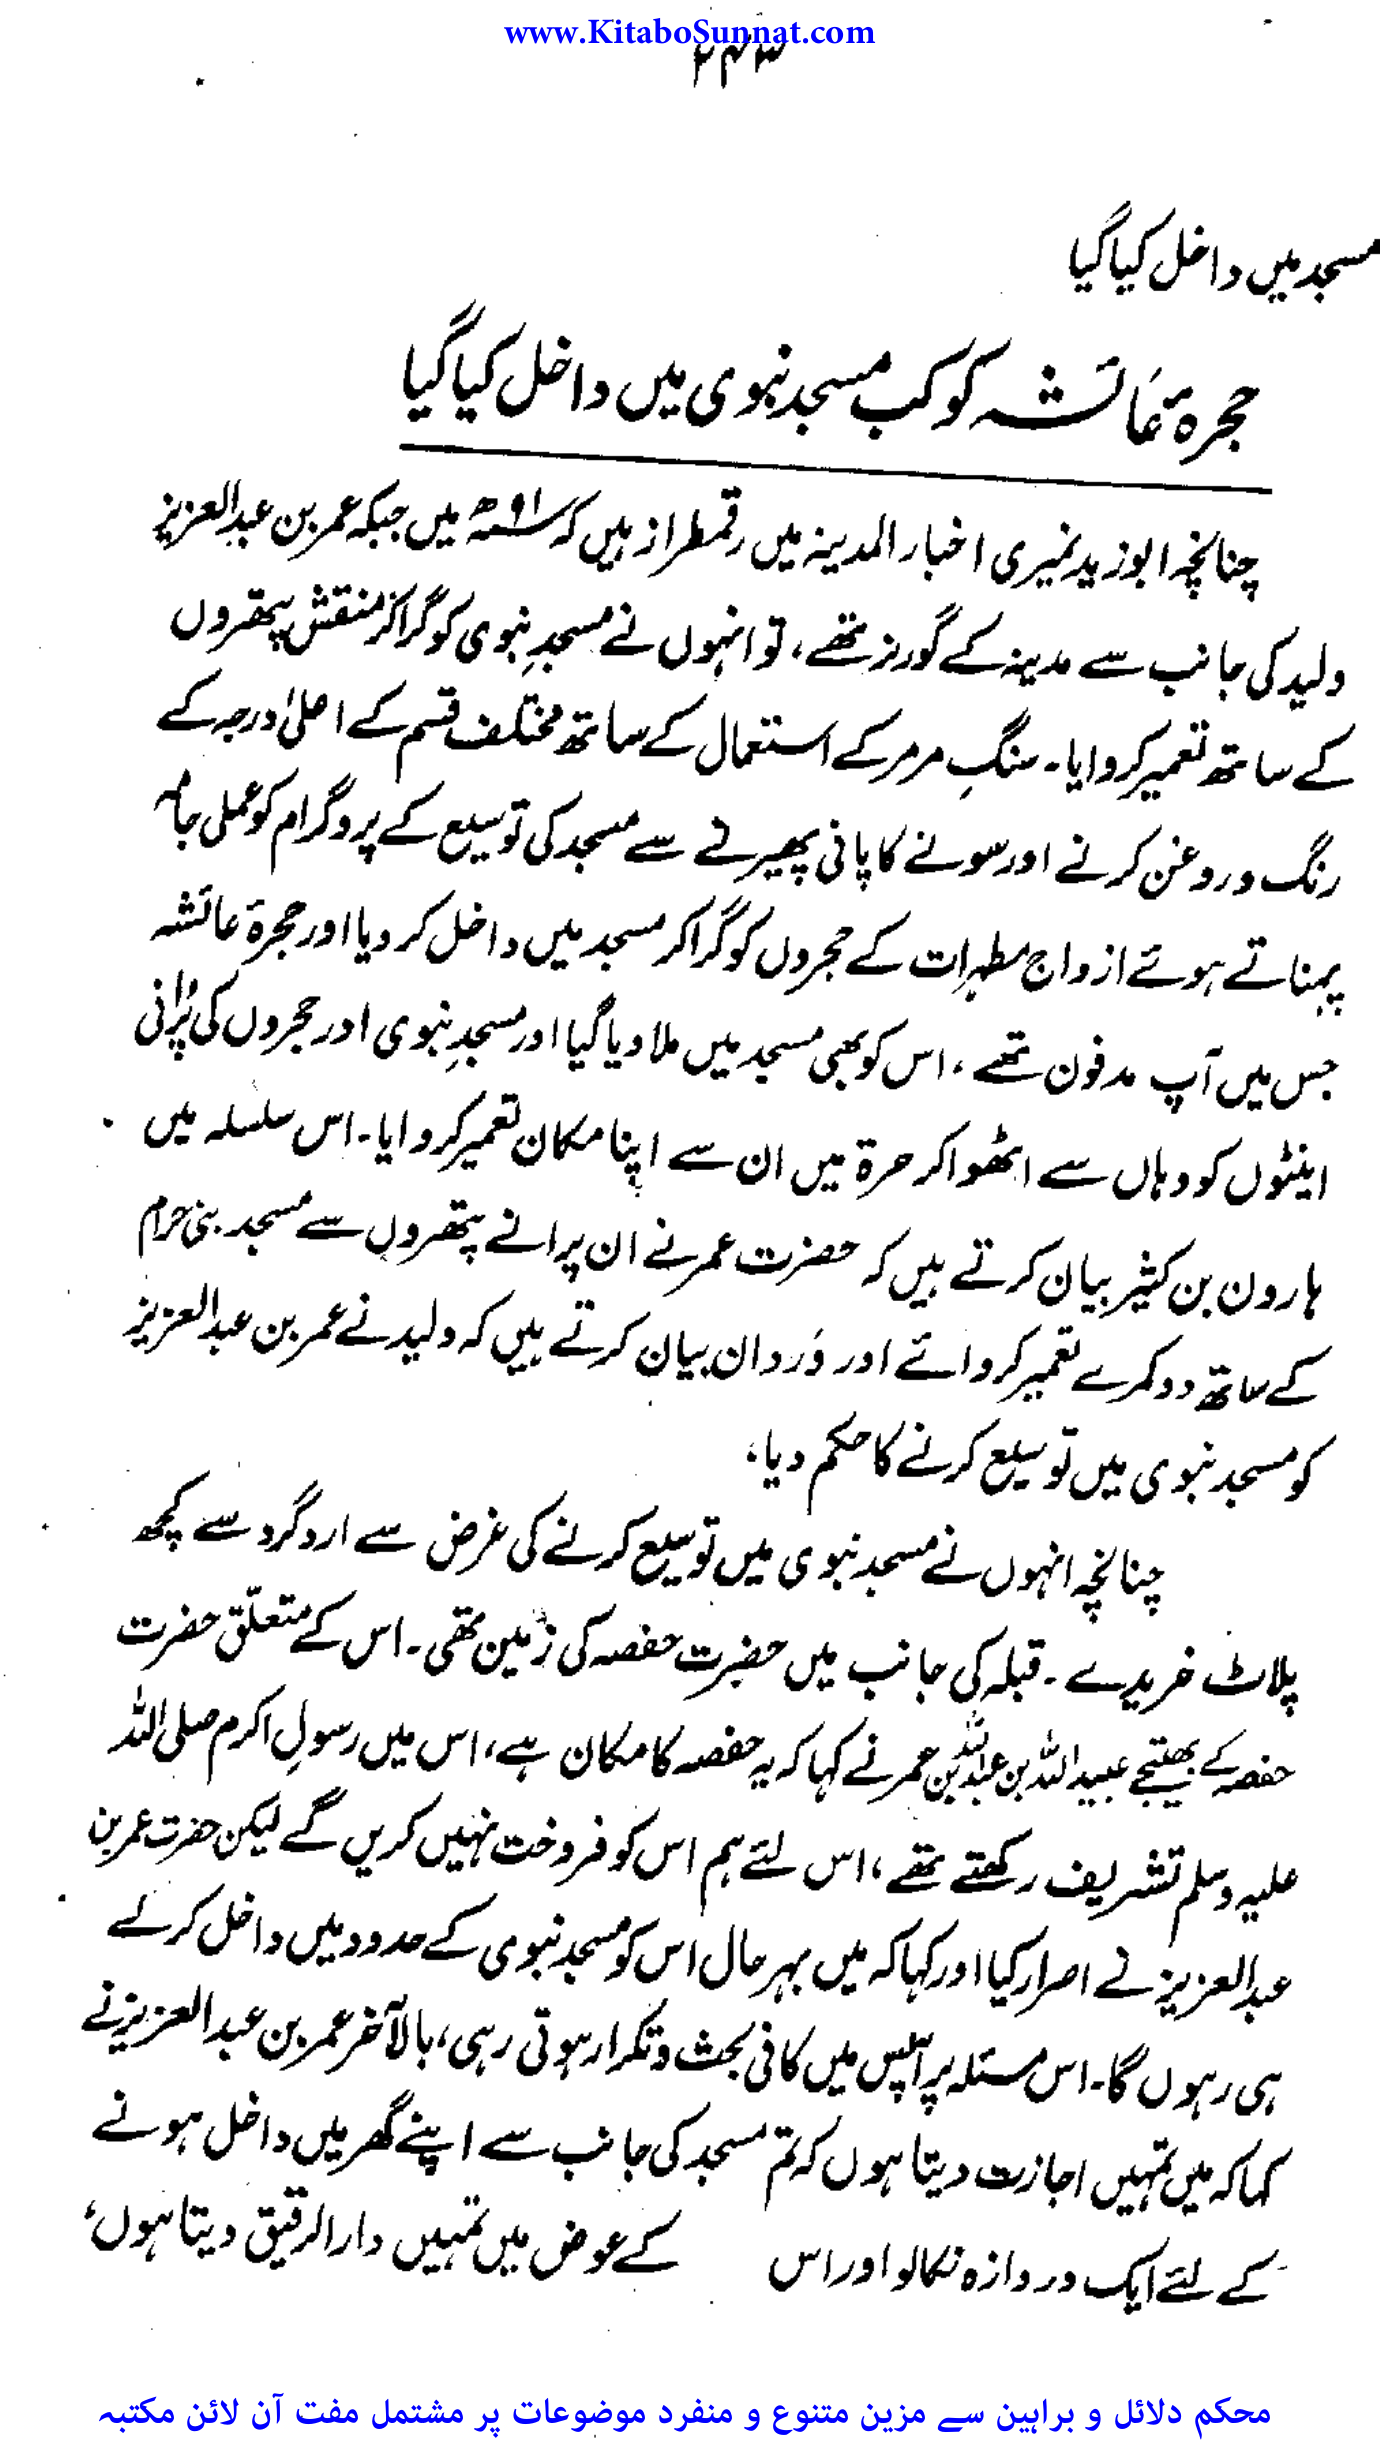 www.KitaboSunnat.com
۲۴۳
مسجد میں داخل کیا گیا
حجرۂ عائشہ کو کب مسجد نبوی میں داخل کیا گیا
چنانچہ ابوزید نمیری اخبار المدینہ میں رقمطراز ہیں کہ ۹۱ھ میں جبکہ عمر بن عبدالعزیز
ولید کی جانب سے مدینہ کے گورنر تھے، تو انہوں نے مسجدِ نبوی کو گرا کر منقش پتھروں
کے ساتھ تعمیر کروایا۔ سنگِ مرمر کے استعمال کے ساتھ مختلف قسم کے اعلیٰ درجہ کے
رنگ و روغن کرنے اور سونے کا پانی پھیرنے سے مسجد کی توسیع کے پروگرام کو عملی جامہ
پہناتے ہوئے ازواج مطہرات کے حجروں کو گرا کر مسجد میں داخل کر دیا اور حجرۂ عائشہ
جس میں آپ مدفون تھے، اس کو بھی مسجد میں ملا دیا گیا اور مسجدِ نبوی اور حجروں کی پُرانی
اینٹوں کو وہاں سے اٹھوا کر حرۃ میں ان سے اپنا مکان تعمیر کروایا۔ اس سلسلہ میں
ہارون بن کثیر بیان کرتے ہیں کہ حضرت عمر نے ان پرانے پتھروں سے مسجد بنی حرام
کے ساتھ دو کمرے تعمیر کروائے اور وَردان بیان کرتے ہیں کہ ولید نے عمر بن عبدالعزیز
کو مسجد نبوی میں توسیع کرنے کا حکم دیا،
چنانچہ انہوں نے مسجد نبوی میں توسیع کرنے کی غرض سے ارد گرد سے کچھ
پلاٹ خریدے۔ قبلہ کی جانب میں حضرت حفصہ کی زمین تھی۔ اس کے متعلّق حضرت
حفصہ کے بھتیجے عبید اللہ بن عبداللہ بن عمر نے کہا کہ یہ حفصہ کا مکان ہے، اس میں رسولِ اکرم صلی اللہ
علیہ وسلم تشریف رکھتے تھے، اس لئے ہم اس کو فروخت نہیں کریں گے لیکن حضرت عمر بن
عبدالعزیز نے اصرار کیا اور کہا کہ میں بہر حال اس کو مسجد نبوی کے حدود میں داخل کر کے
ہی رہوں گا۔ اس مسئلہ پر آپس میں کافی بحث و تکرار ہوتی رہی، بالآخر عمر بن عبدالعزیز نے
کہا کہ میں تمہیں اجازت دیتا ہوں کہ تم مسجد کی جانب سے اپنے گھر میں داخل ہونے
کے لئے ایک دروازہ نکالو اور اس کے عوض میں تمہیں دار الرقیق دیتا ہوں،
محکم دلائل و براہین سے مزین متنوع و منفرد موضوعات پر مشتمل مفت آن لائن مکتبہ